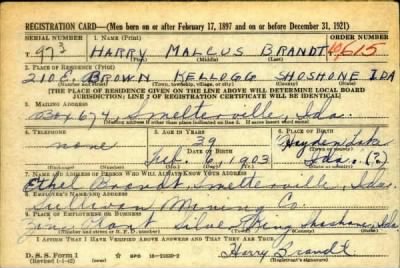 REGISTRATION CARD—(Men born on or after February 17, 1897 and on or before December 31, 1921)
SERIAL NUMBER 1. NAME (Print) ORDER NUMBER
T 973 HARRY MALCUS BRANDT 10615
(First) (Middle) (Last)
2. PLACE OF RESIDENCE (Print)
210 E. BROWN KELLOGG SHOSHONE IDA
(Number and street) (Town, township, village, or city) (County) (State)
[THE PLACE OF RESIDENCE GIVEN ON THE LINE ABOVE WILL DETERMINE LOCAL BOARD
JURISDICTION; LINE 2 OF REGISTRATION CERTIFICATE WILL BE IDENTICAL]
3. MAILING ADDRESS
Box 674 Smelterville Ida.
[Mailing address if other than place indicated on line 2. If same insert word same]
4. TELEPHONE 5. AGE IN YEARS 6. PLACE OF BIRTH
none 39 Hayden Lake
DATE OF BIRTH (Town or county)
Feb. 6, 1903 Ida. (?)
(Exchange) (Number) (Mo.) (Day) (Yr.) (State or country)
7. NAME AND ADDRESS OF PERSON WHO WILL ALWAYS KNOW YOUR ADDRESS
Ethel Brandt, Smelterville, Ida.
8. EMPLOYER'S NAME AND ADDRESS
Sullivan Mining Co.
9. PLACE OF EMPLOYMENT OR BUSINESS
Zinc Plant Silver King, Shoshone, Ida
(Number and street or R. F. D. number) (Town) (County) (State)
I AFFIRM THAT I HAVE VERIFIED ABOVE ANSWERS AND THAT THEY ARE TRUE.
D. S. S. Form 1 Harry Brandt
(Revised 1-1-42) (over) GPO 16—21630-2 (Registrant's signature)